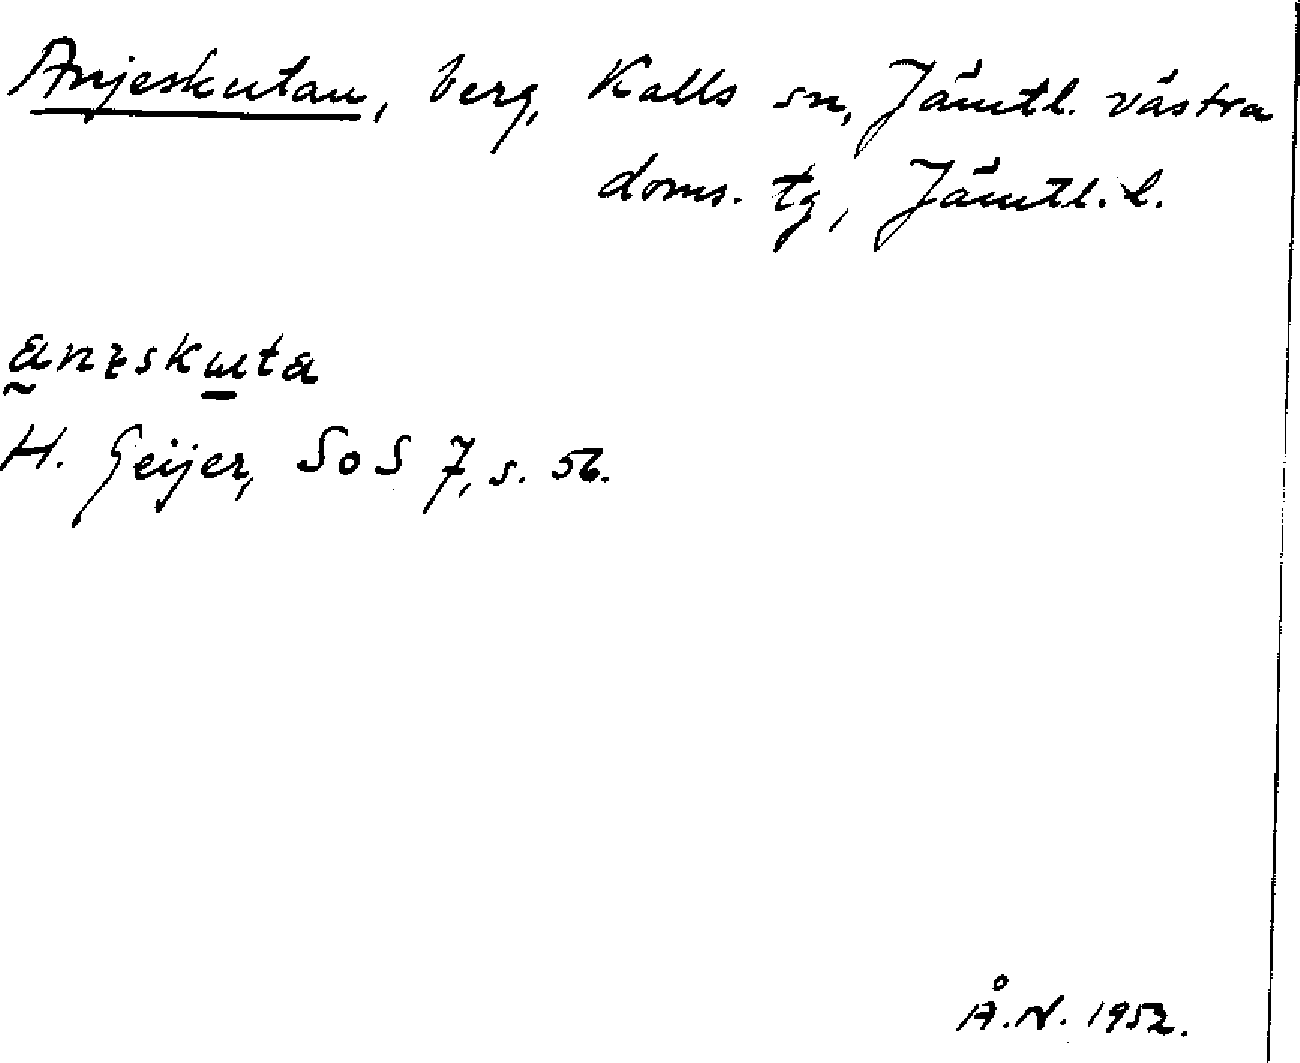 Anjeskutan, berg, Kalls sn, Jämtl. västra
doms. tg, Jämtl. l.
H. Geijer, SoS 7, s. 56.
Å.N. 1952.